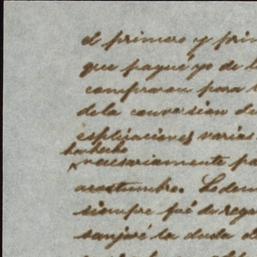 el primero y prin
que pagué yo de l
compraron para l
dela conversion de
esplicaciones varias
han debe
necesariamente pa
acostumbro. Lodem
siempre fué de regu
sanjaré la duda d